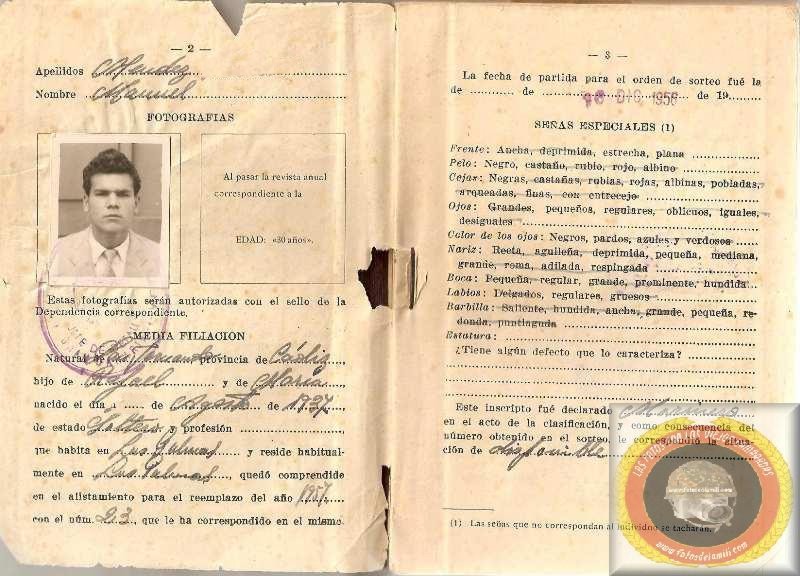 — 2 —
Apellidos Mendez
Nombre Manuel
FOTOGRAFIAS
Al pasar la revista anual
correspondiente a la
EDAD: «30 años».
Estas fotografías serán autorizadas con el sello de la
Dependencia correspondiente.
MEDIA FILIACION
Natural de San Fernando provincia de Cádiz
hijo de Rafael y de María
nacido el día de Agosto de 1937
de estado Soltero y profesión
que habita en Las Palmas y reside habitual-
mente en Las Palmas, quedó comprendido
en el alistamiento para el reemplazo del año 1957
con el núm. 23, que le ha correspondido en el mismo.
— 3 —
La fecha de partida para el orden de sorteo fué la
de de DIC 1956 de 19
SEÑAS ESPECIALES (1)
Frente: Ancha, deprimida, estrecha, plana
Pelo: Negro, castaño, rubio, rojo, albino
Cejas: Negras, castañas, rubias, rojas, albinas, pobladas,
arqueadas, finas, con entrecejo
Ojos: Grandes, pequeños, regulares, oblicuos, iguales,
desiguales
Color de los ojos: Negros, pardos, azules y verdosos
Nariz: Recta, aguileña, deprimida, pequeña, mediana,
grande, roma, afilada, respingada
Boca: Pequeña, regular, grande, prominente, hundida
Labios: Delgados, regulares, gruesos
Barbilla: Saliente, hundida, ancha, grande, pequeña, re-
donda, puntiaguda
Estatura:
¿Tiene algún defecto que lo caracteriza?
Este inscripto fué declarado
en el acto de la clasificación, y como consecuencia del
número obtenido en el sorteo, le correspondió la situa-
ción de disponible
(1) Las señas que no correspondan al individuo se tacharán.
www.fotosdelamili.com
www.fotosdelamili.com